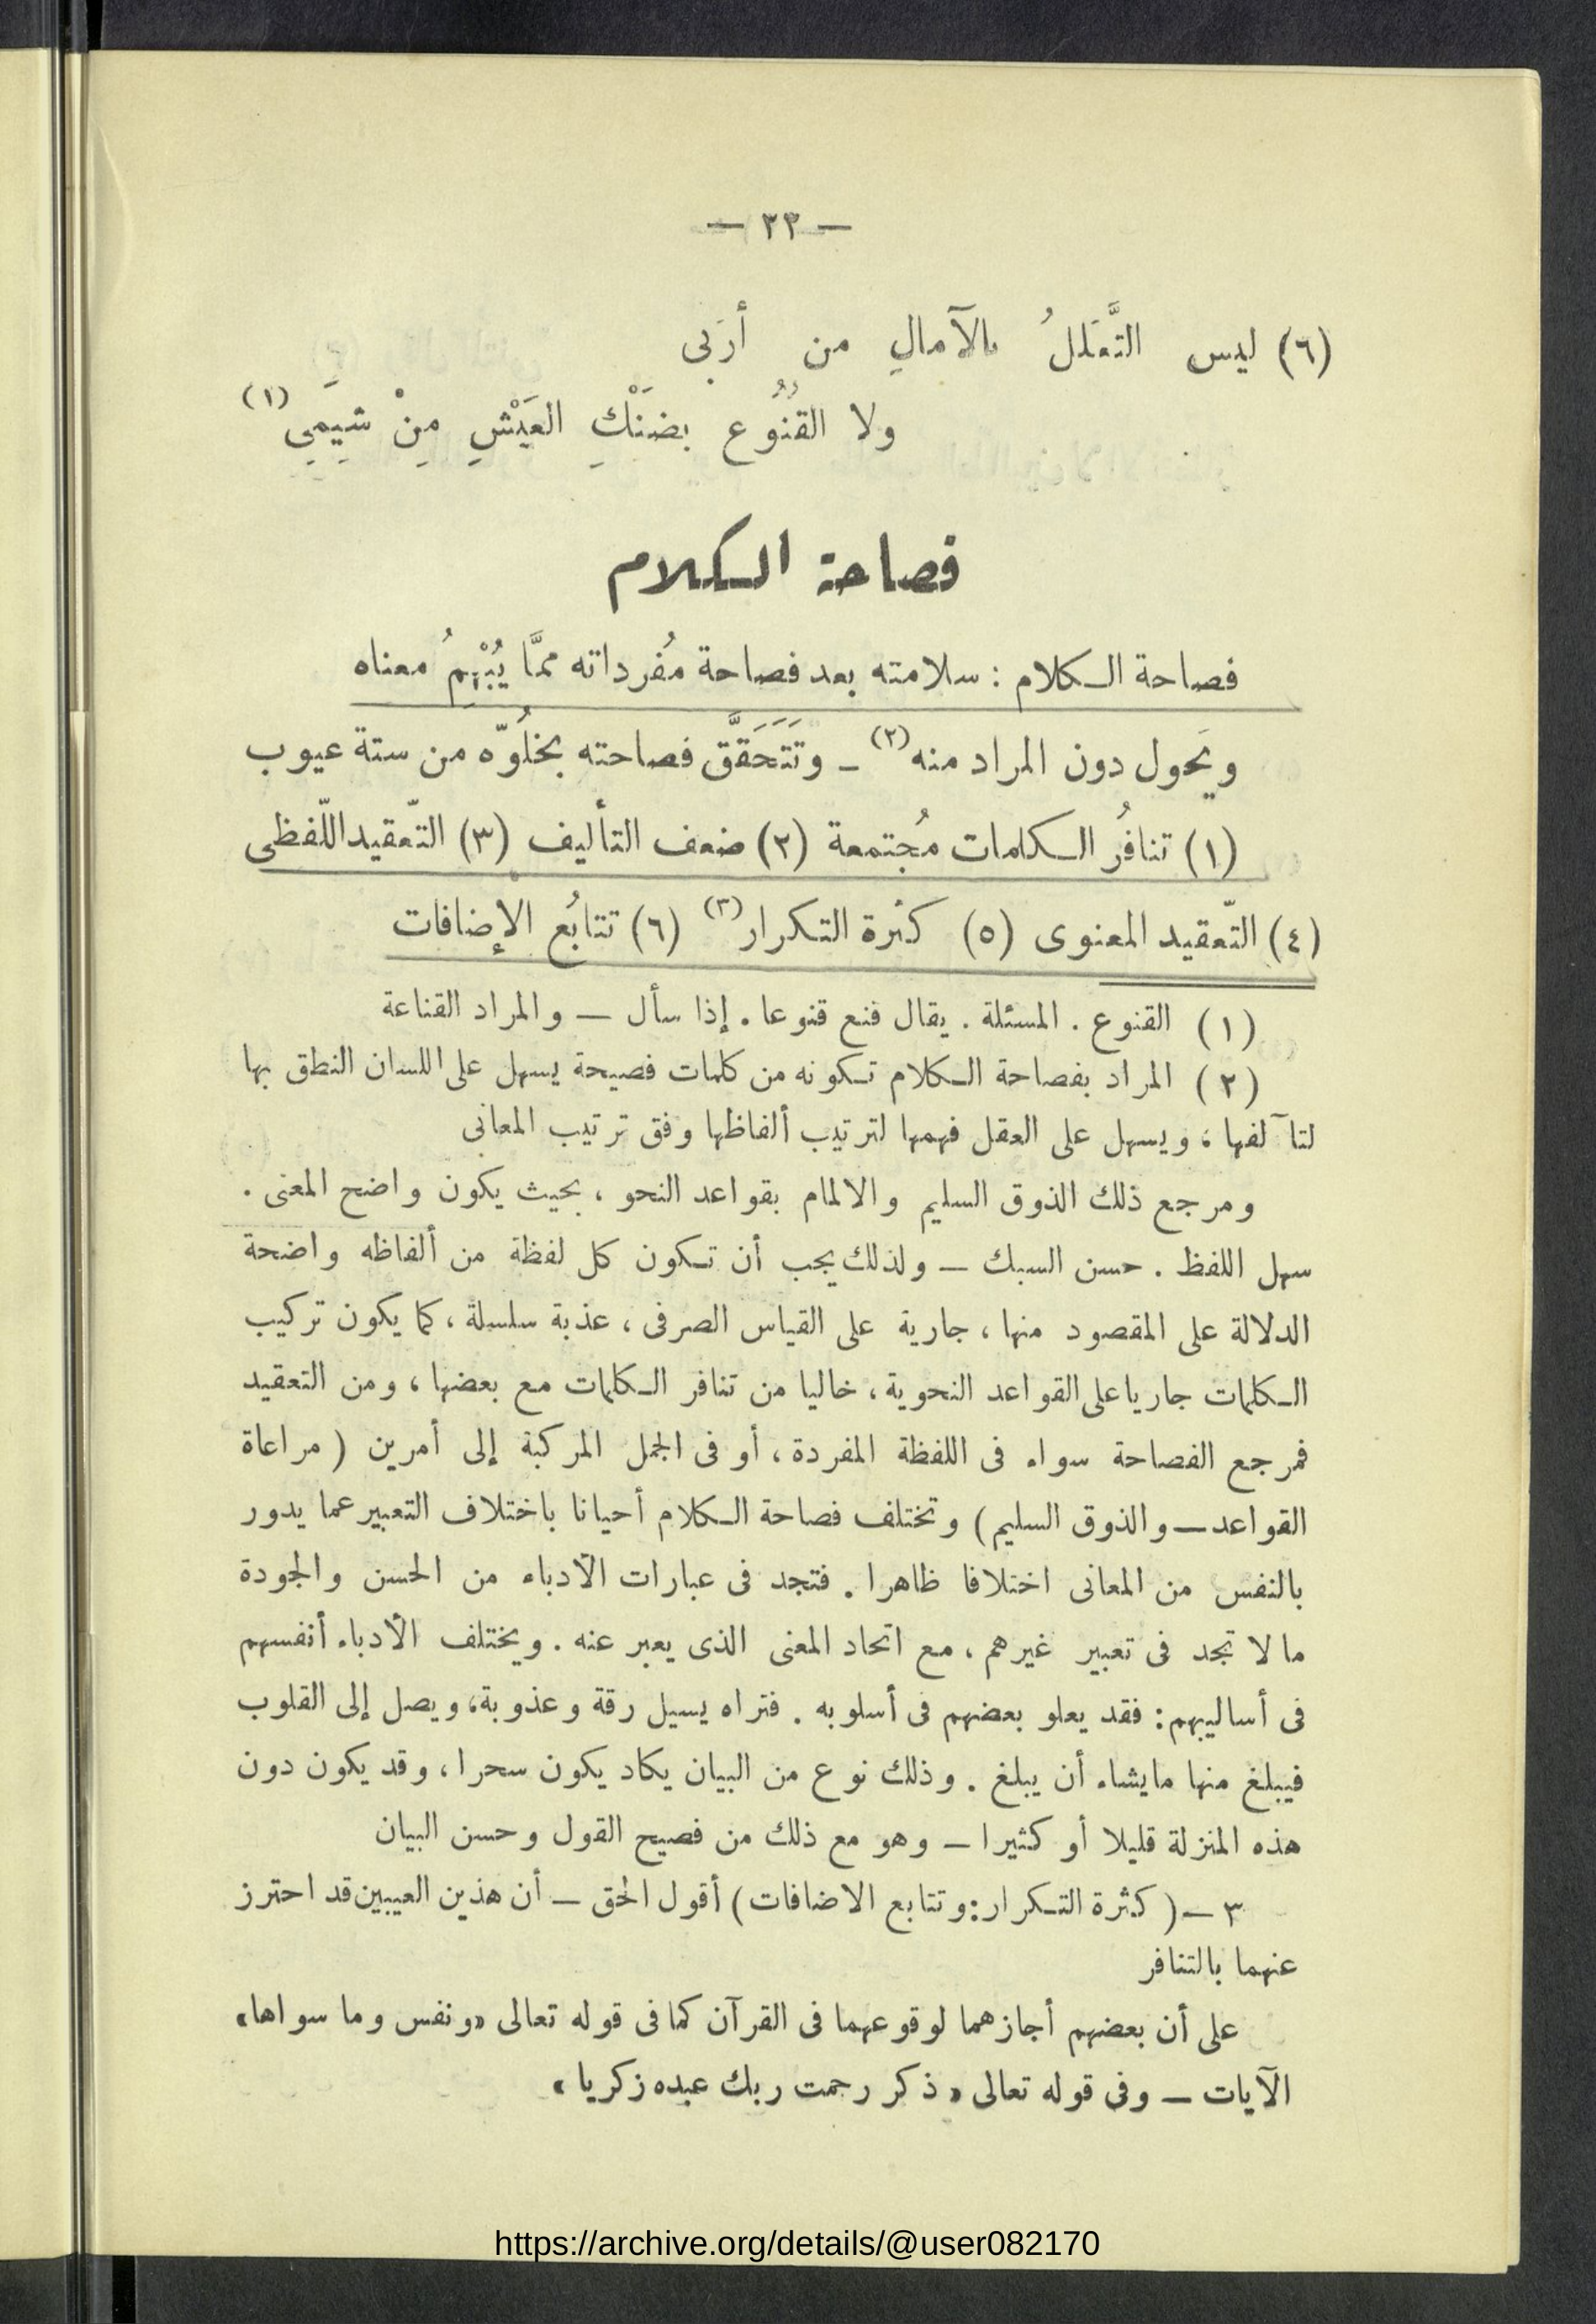 — ٢٣ —
(٦) ليس التَّعَللُ بالآمالِ من أرَبى
ولا القنُوُع بضَنْكِ العَيْشِ مِنْ شِيَمِي(١)
فصاحة الكلام
فصاحة الكلام : سلامته بعد فصاحة مُفرداته ممَّا يُبْهِمُ معناه
ويَحول دون المراد منه(٢) – وتَتَحَقَّق فصاحته بخلُوّه من ستة عيوب
(١) تنافُر الكلمات مُجتمعة (٢) ضعف التأليف (٣) التّعقيد اللّفظى
(٤) التّعقيد المعنوى (٥) كثرة التكرار(٣) (٦) تتابُع الإضافات
(١) القنوع . المسئلة . يقال قنع قنوعا . إذا سأل — والمراد القناعة
(٢) المراد بفصاحة الكلام تكونه من كلمات فصيحة يسهل على اللسان النطق بها
لتآلفها ، ويسهل على العقل فهمها لترتيب ألفاظها وفق ترتيب المعانى
ومرجع ذلك الذوق السليم والالمام بقواعد النحو ، بحيث يكون واضح المعنى .
سهل اللفظ . حسن السبك — ولذلك يجب أن تكون كل لفظة من ألفاظه واضحة
الدلالة على المقصود منها ، جارية على القياس الصرفى ، عذبة سلسلة ، كما يكون تركيب
الكلمات جاريا على القواعد النحوية ، خاليا من تنافر الكلمات مع بعضها ، ومن التعقيد
فمرجع الفصاحة سواء فى اللفظة المفردة ، أو فى الجمل المركبة إلى أمرين ( مراعاة
القواعد — والذوق السليم ) وتختلف فصاحة الكلام أحيانا باختلاف التعبير عما يدور
بالنفس من المعانى اختلافا ظاهرا . فتجد فى عبارات الأدباء من الحسن والجودة
ما لا تجد فى تعبير غيرهم ، مع اتحاد المعنى الذى يعبر عنه . ويختلف الأدباء أنفسهم
فى أساليبهم : فقد يعلو بعضهم فى أسلوبه . فتراه يسيل رقة وعذوبة ، ويصل إلى القلوب
فيبلغ منها مايشاء أن يبلغ . وذلك نوع من البيان يكاد يكون سحرا ، وقد يكون دون
هذه المنزلة قليلا أو كثيرا — وهو مع ذلك من فصيح القول وحسن البيان
٣ — ( كثرة التكرار : وتتابع الاضافات ) أقول الحق — أن هذين العيبين قد احترز
عنهما بالتنافر
على أن بعضهم أجازهما لوقوعهما فى القرآن كما فى قوله تعالى «ونفس وما سواها»
الآيات — وفى قوله تعالى « ذكر رحمت ربك عبده زكريا »
https://archive.org/details/@user082170